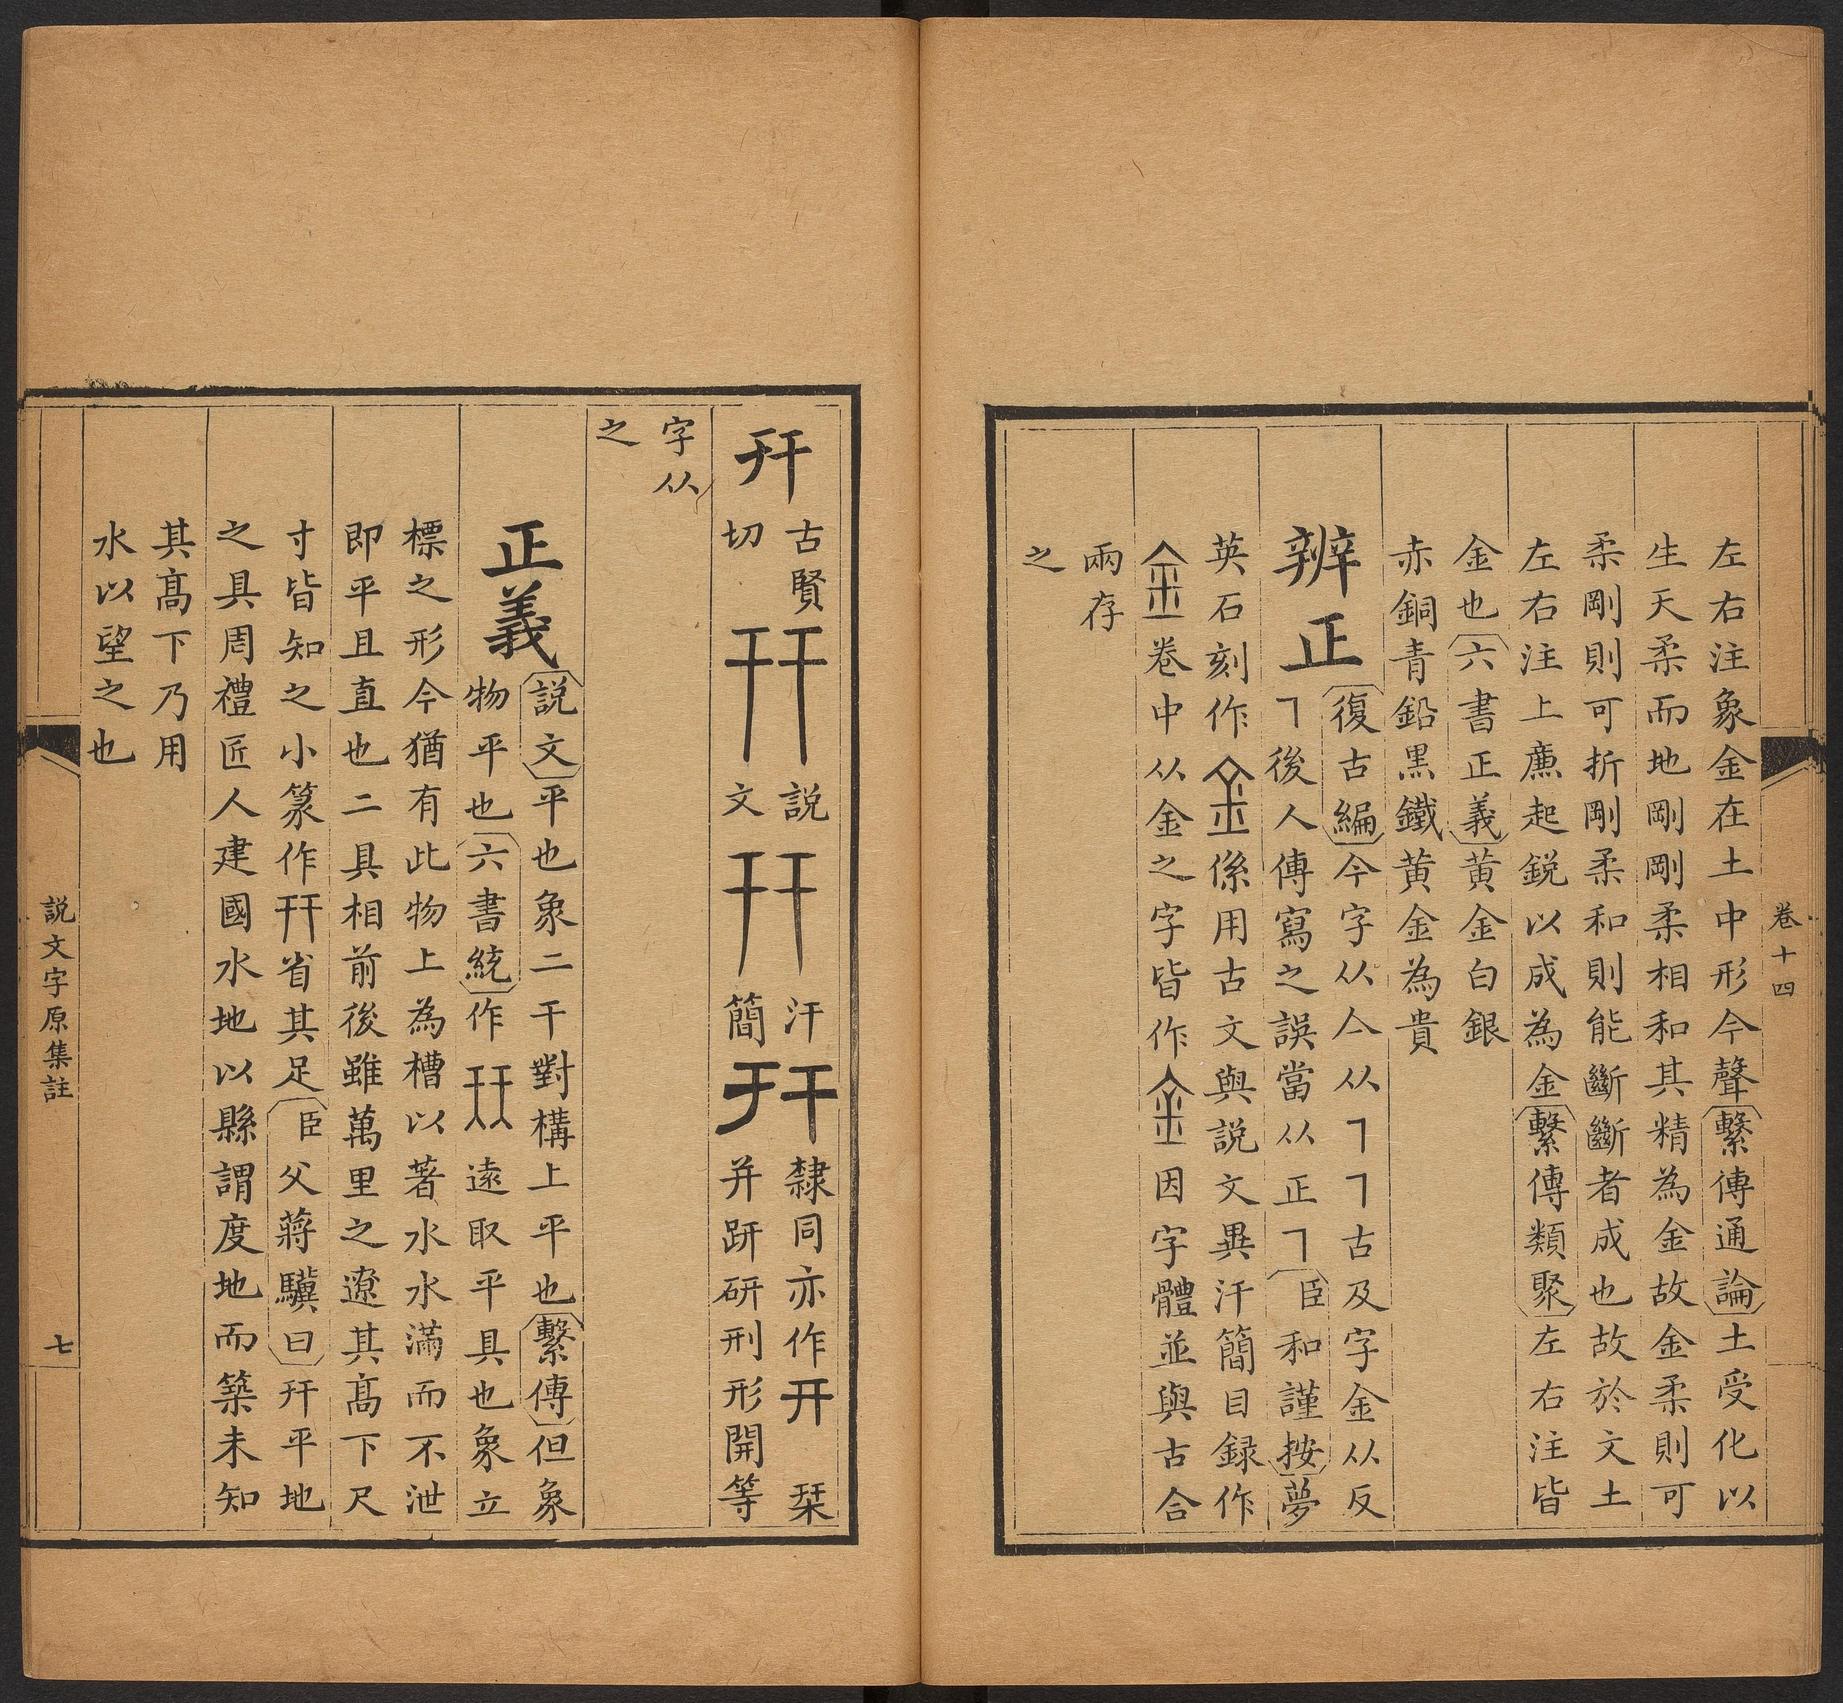 卷十四
左右注象金在土中形今聲繫傳通論土受化以
生天柔而地剛剛柔相和其精為金故金柔則可
柔剛則可折剛柔和則能斷斷者成也故於文土
左右注上廉起鋭以成為金繫傳類聚左右注皆
金也六書正義黄金白銀
赤銅青鉛黒鐵黄金為貴
辨正
復古編今字从亼从㇕㇕古及字金从反
㇕後人傳寫之誤當从正㇕臣和謹按夢
英石刻作金係用古文與説文異汗簡目録作
金卷中从金之字皆作金因字體並與古合
兩存
之
幵
古賢
切
幵
説
文
幵
汗
簡
幵
隸同亦作开 栞
并趼研刑形開等
字从
之
正義
説文平也象二干對構上平也繫傳但象
物平也六書統作𠀤遠取平具也象立
標之形今猶有此物上為槽以著水水滿而不泄
即平且直也二具相前後雖萬里之遼其髙下尺
寸皆知之小篆作幵省其足臣父蔣驥曰幵平地
之具周禮匠人建國水地以縣謂度地而築未知
其髙下乃用
水以望之也
説文字原集註
七